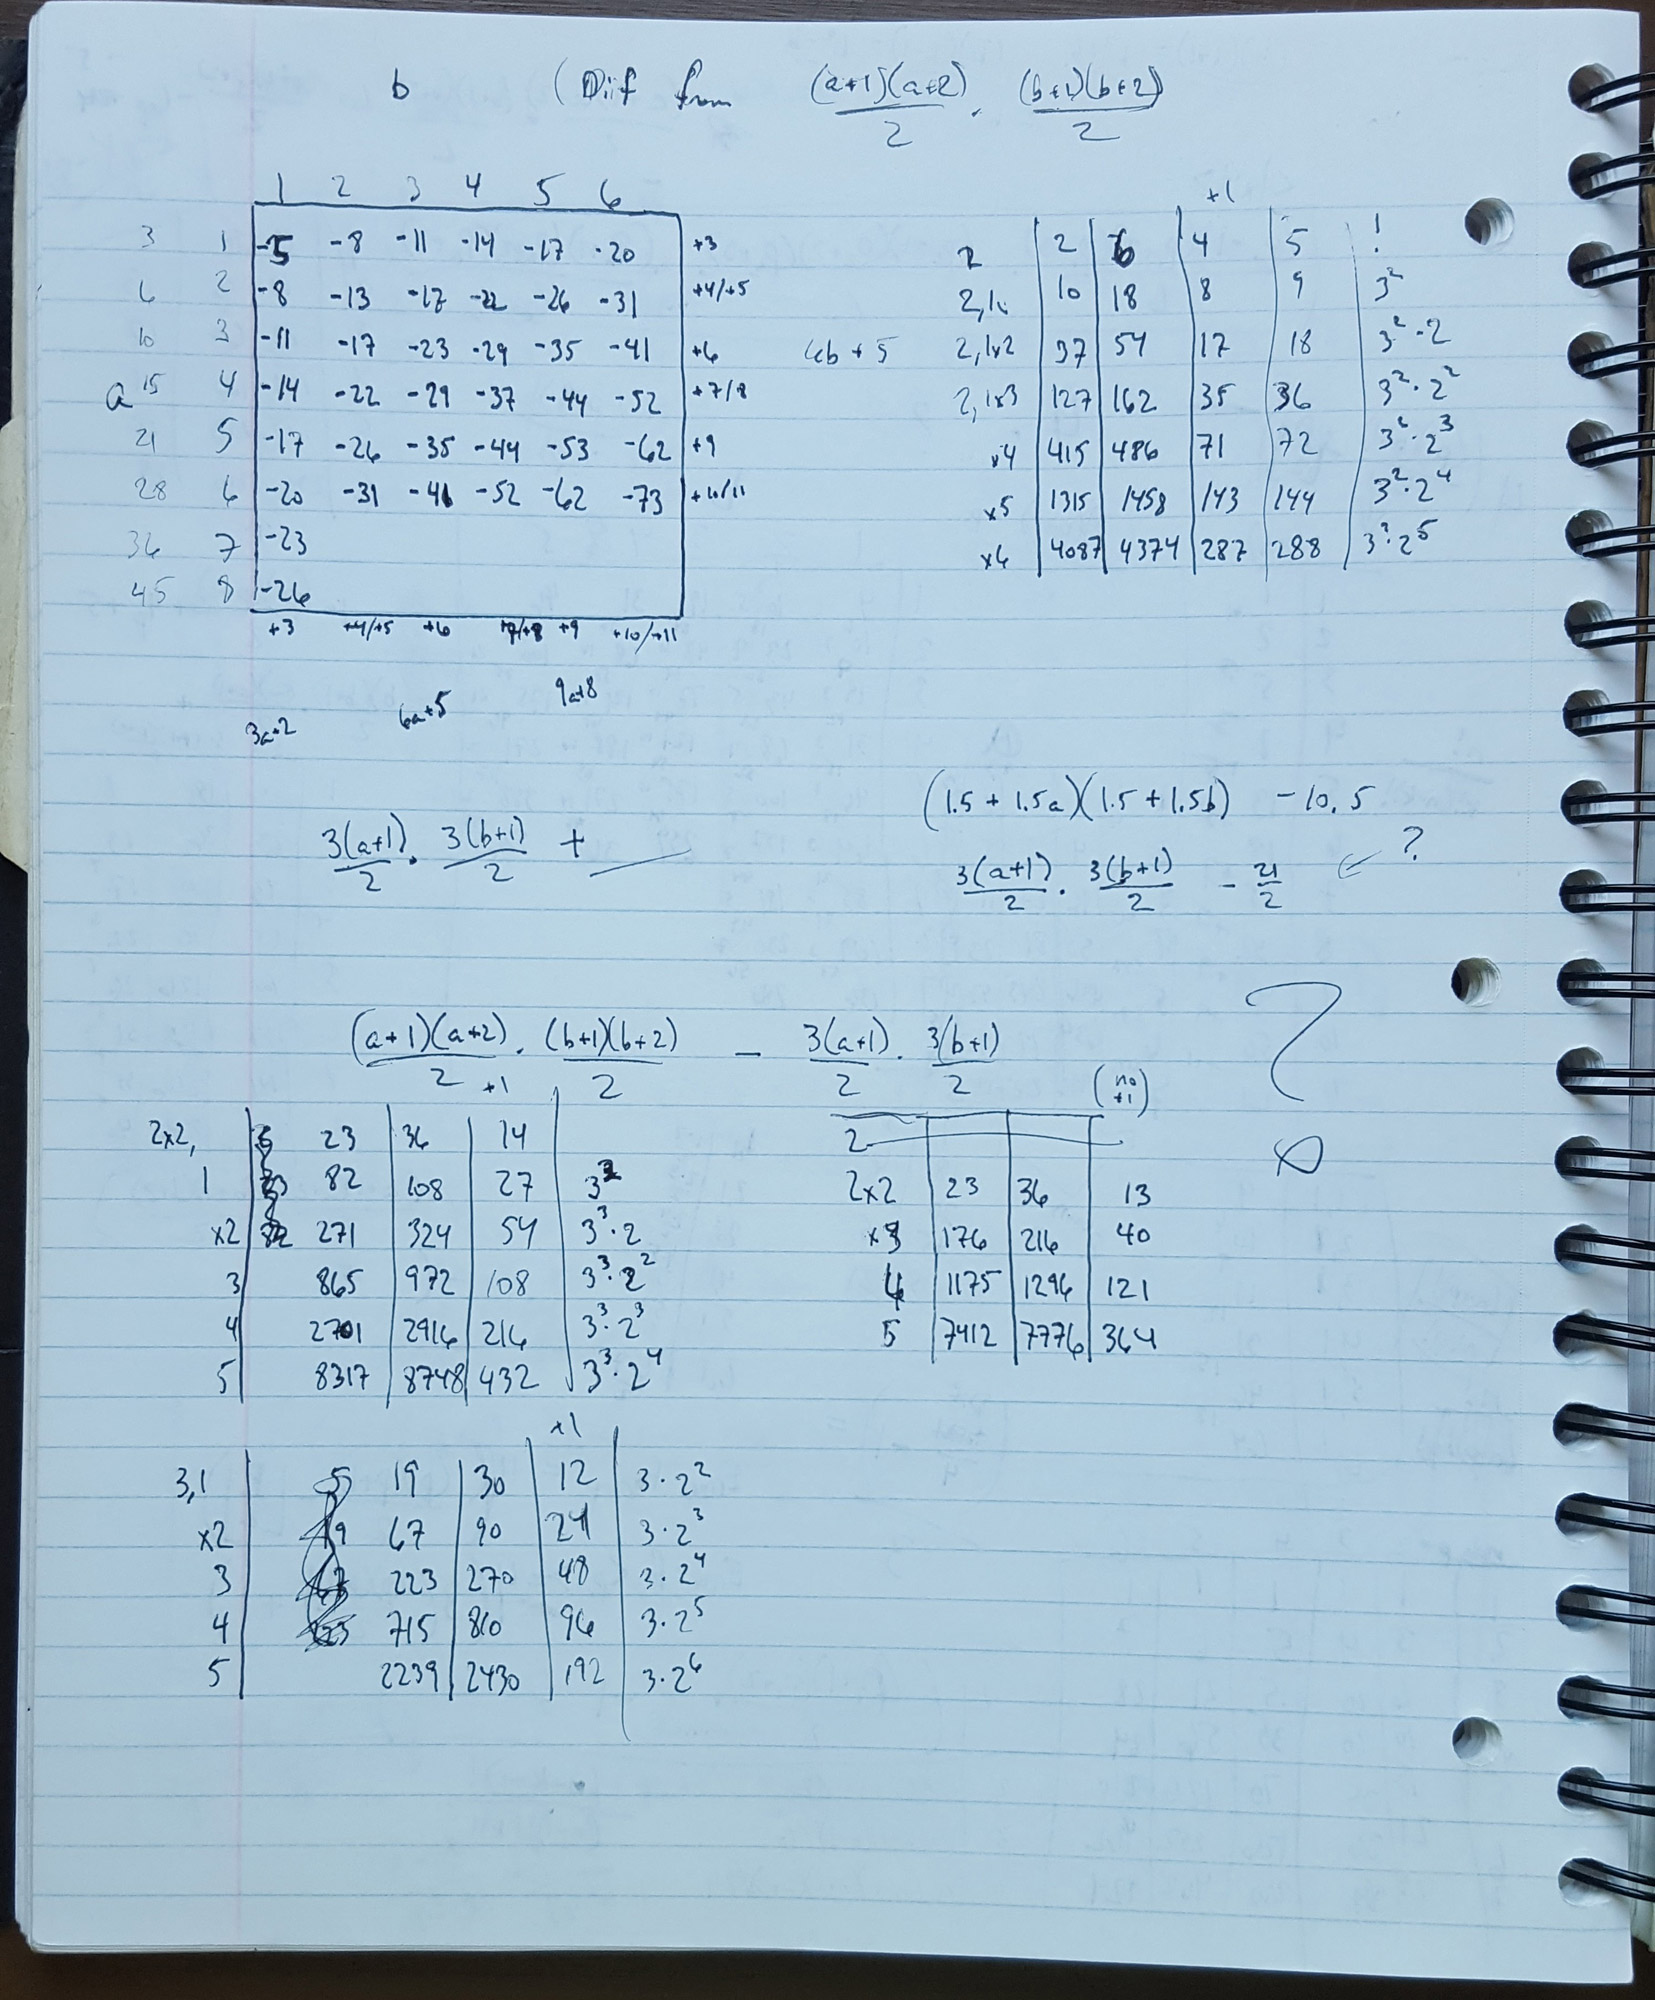 b ( Diif from (a+1)(a+2)/2 · (b+1)(b+2)/2
1 2 3 4 5 6
3 1 -5 -8 -11 -14 -17 -20 +3
6 2 -8 -13 -17 -22 -26 -31 +4/+5
10 3 -11 -17 -23 -29 -35 -41 +6 6b + 5
a 15 4 -14 -22 -29 -37 -44 -52 +7/8
21 5 -17 -26 -35 -44 -53 -62 +9
28 6 -20 -31 -41 -52 -62 -73 +10/11
36 7 -23
45 8 -26
+3 +4/+5 +6 +7/+8 +9 +10/+11
3a+2 6a+5 9a+8
+1
2 2 6 4 5 !
2,1x 10 18 8 9 3²
2,1x2 37 54 17 18 3²·2
2,1x3 127 162 35 36 3²·2²
x4 415 486 71 72 3²·2³
x5 1315 1458 143 144 3²·2⁴
x6 4087 4374 287 288 3²·2⁵
(1.5 + 1.5a)(1.5 + 1.5b) - 10.5
3(a+1)/2 · 3(b+1)/2 +
3(a+1)/2 · 3(b+1)/2 - 21/2 ← ?
(a+1)(a+2)/2 · (b+1)(b+2)/2 - 3(a+1)/2 · 3(b+1)/2 ?
+1
2x2, 23 36 14
1 82 108 27 3³
x2 271 324 54 3³·2
3 865 972 108 3³·2²
4 2701 2916 216 3³·2³
5 8317 8748 432 3³·2⁴
(no +1)
2
2x2 23 36 13
x3 176 216 40
4 1175 1296 121
5 7412 7776 364
+1
3,1 19 30 12 3·2²
x2 67 90 24 3·2³
3 223 270 48 3·2⁴
4 715 810 96 3·2⁵
5 2239 2430 192 3·2⁶